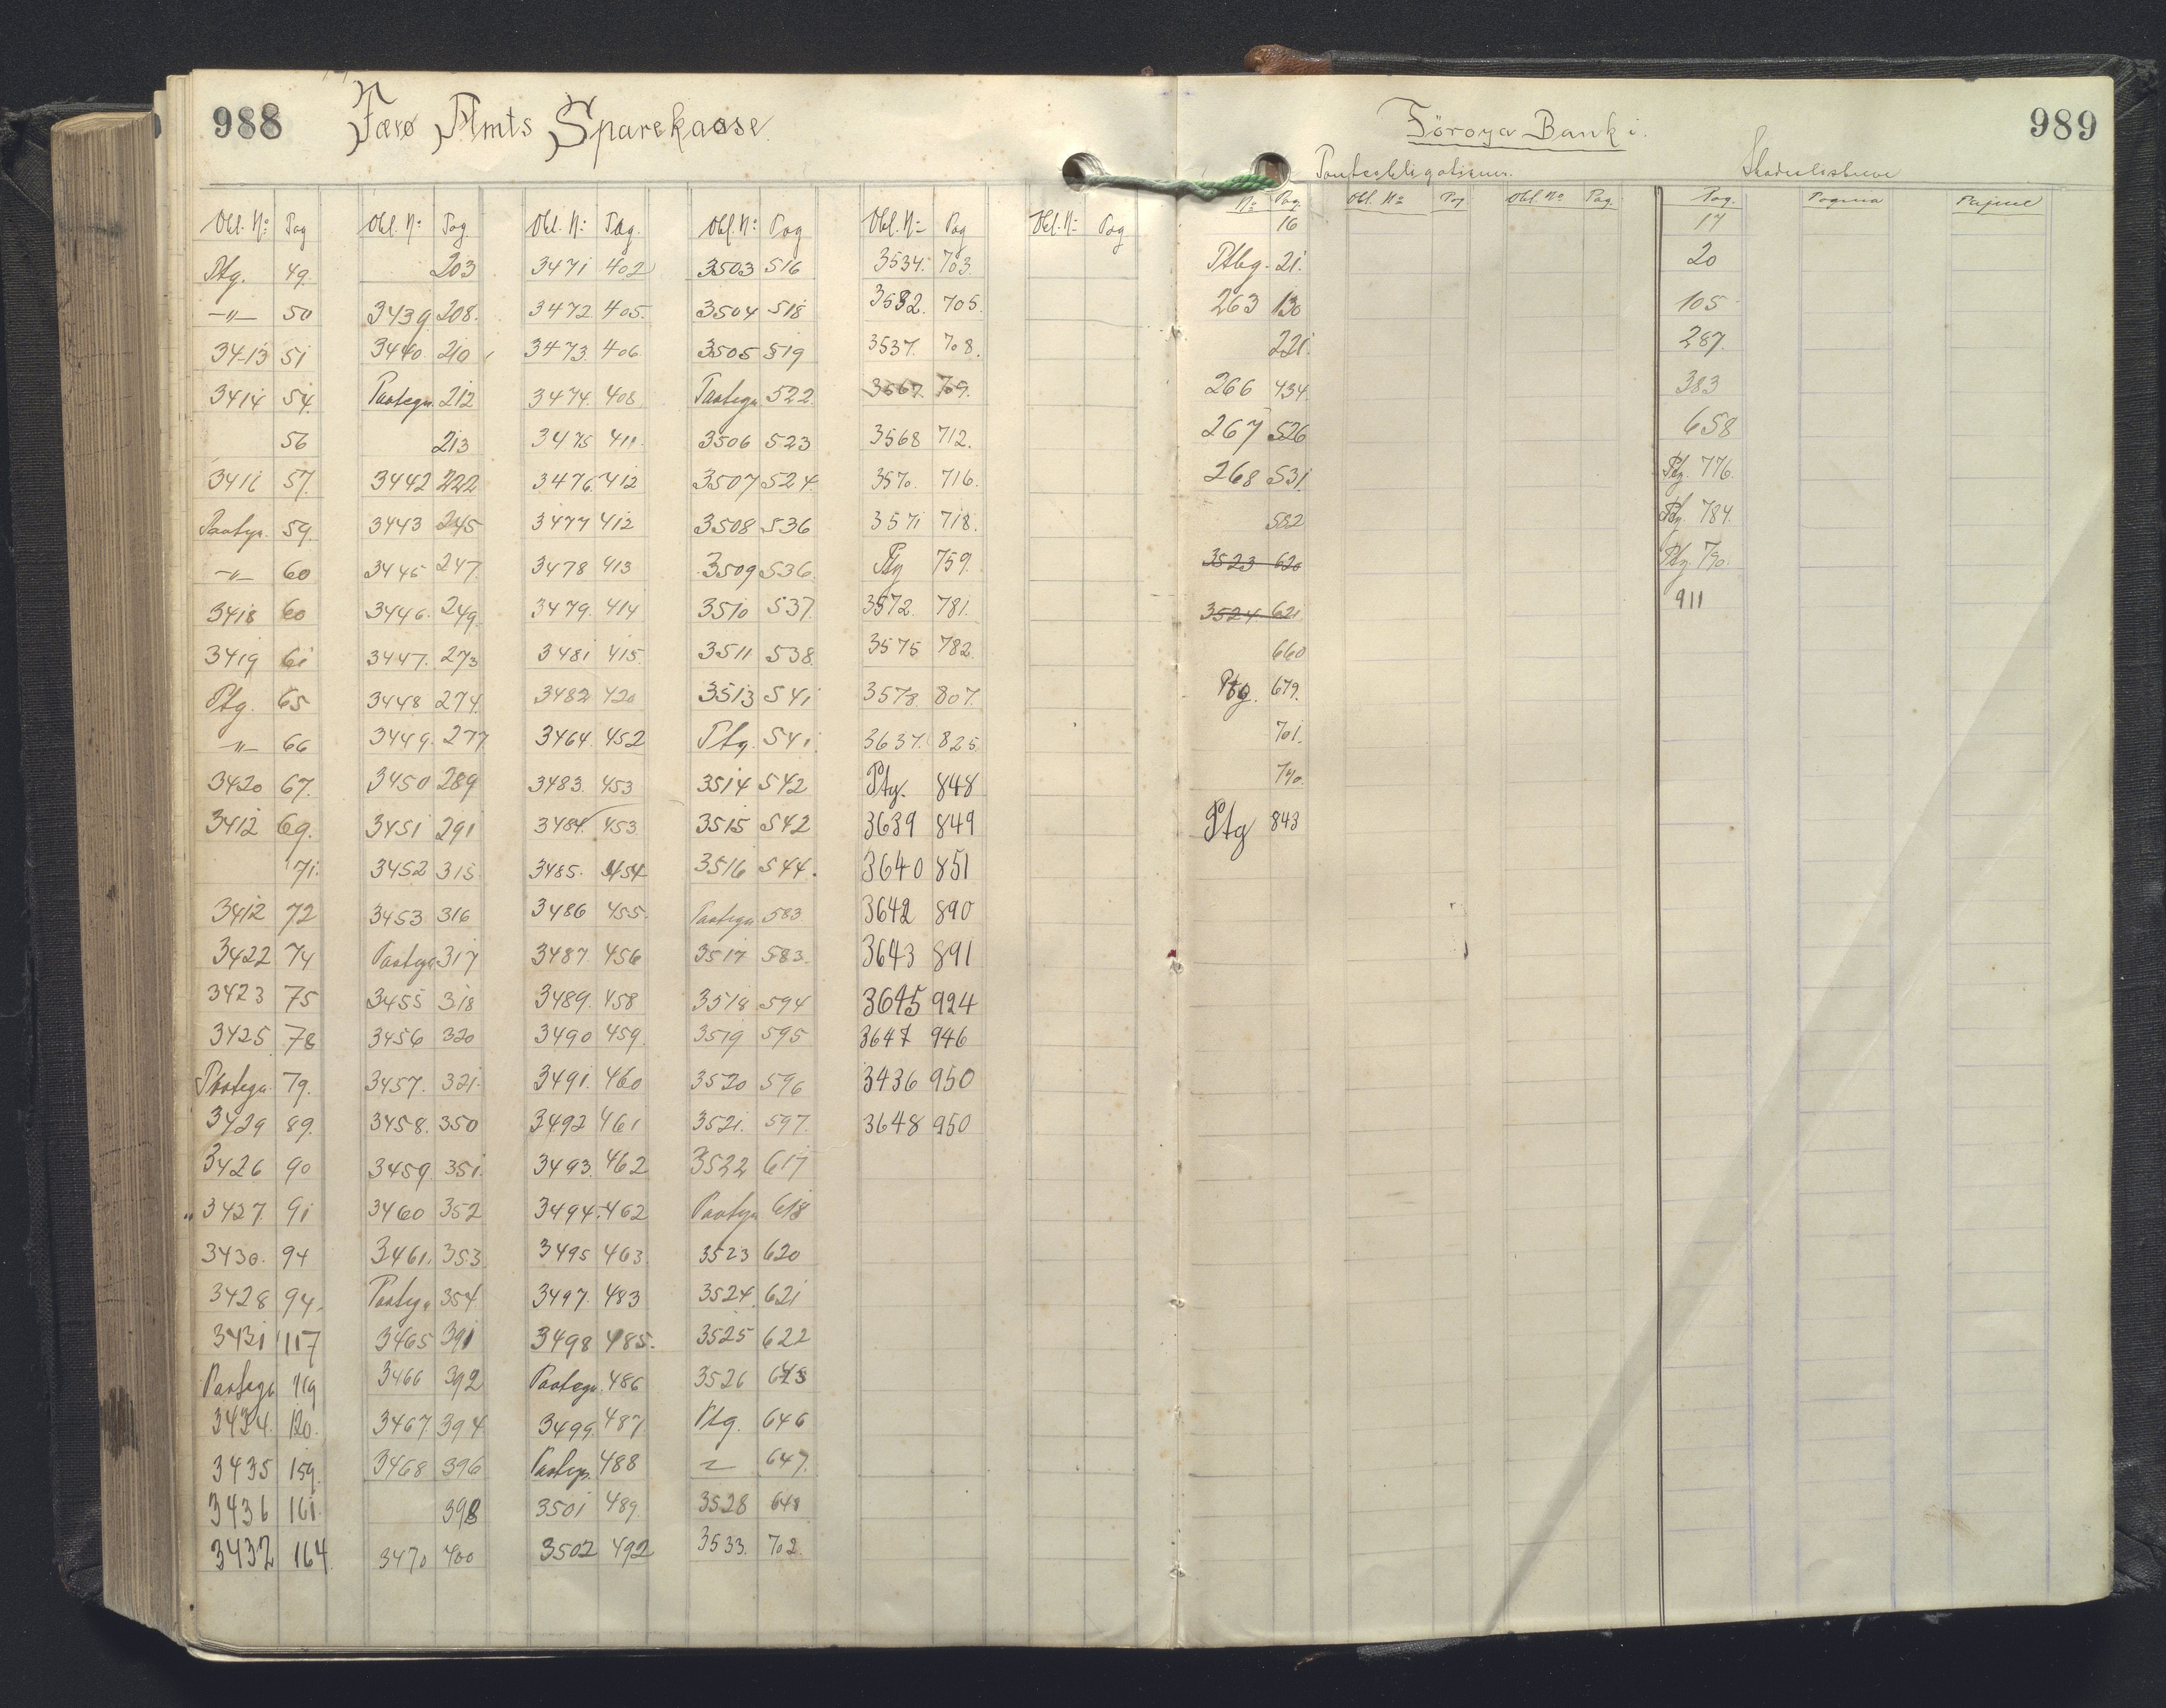 988 Færø Amts Sparekasse.
Obl. No Pag Obl. No Pag Obl. No Pag. Obl. No Pag Obl. No Pag Obl. No Pag
Ptg. 49. 203 3471 402 3503 516 3534. 703.
—"— 50 3439 208. 3472 405. 3504 518 3532. 705.
3413 51 3440 210 3473. 406 3505 519 3537. 708.
3414 54. Paategn 212 3474. 408 Paategn 522. 3567. 709.
56 213 3475 411. 3506 523 3568 712.
3416 57. 3442 222 3476. 412 3507 524. 3570. 716.
Paategn. 59. 3443 245 3477 412 3508 536 3571 718.
—"— 60 3445 247. 3478 413 3509 536. Ptg 759.
3418 60 3446. 249. 3479. 414 3510 537. 3572. 781.
3419 61 3447. 273 3481 415. 3511 538. 3575 782.
Ptg. 65 3448 274. 3482 420 3513 541 3578. 807.
—"— 66 3449. 277. 3464. 452 Ptg. 541 3637. 825.
3420 67. 3450 289 3483. 453 3514 542 Ptg. 848
3412 69. 3451 291 3484. 453. 3515 542 3639 849
71. 3452 315. 3485. 454 3516 544. 3640 851
3412 72 3453 316 3486 455. Paategn 583 3642 890
3422 74 Paategn 317 3487. 456 3517 583. 3643 891
3423 75 3455 318 3489. 458 3518 594 3645 924
3425 78 3456 320 3490 459 3519 595 3647 946
Paategn. 79. 3457. 321. 3491. 460 3520 596 3436 950
3429 89. 3458. 350 3492 461 3521. 597. 3648 950
3426 90 3459. 351. 3493. 462 3522 617
3427. 91 3460 352 3494. 462 Paategn 618
3430. 94 3461. 353 3495 463. 3523 620
3428 94. Paategn 354. 3497. 483 3524. 621
3431 117 3465 391 3498 485. 3525 622
Paategn 119 3466 392 Paategn. 486 3526 623
3434. 120. 3467. 394 3499. 487. Ptg. 646
3435 159. 3468 396 Paategn. 488 647.
3436 161. 398 3501 489. 3528 648
3432 164. 3470 400 3502 492 3533. 702.
Föroya Banki. 989
Panteobligationer. Skadeslösbreve
No Pag. Obl. No Pag Obl. No Pag. Pag. Pagina Pagina
16 17
Ptbg. 21. 20
263 130 105
221. 287.
266 434. 383
267 526 658
268 531. Ptg. 776.
582 Ptg. 784.
3523 620 Ptg. 790.
3524 621 911
660
Ptg. 679.
701.
740.
Ptg 843